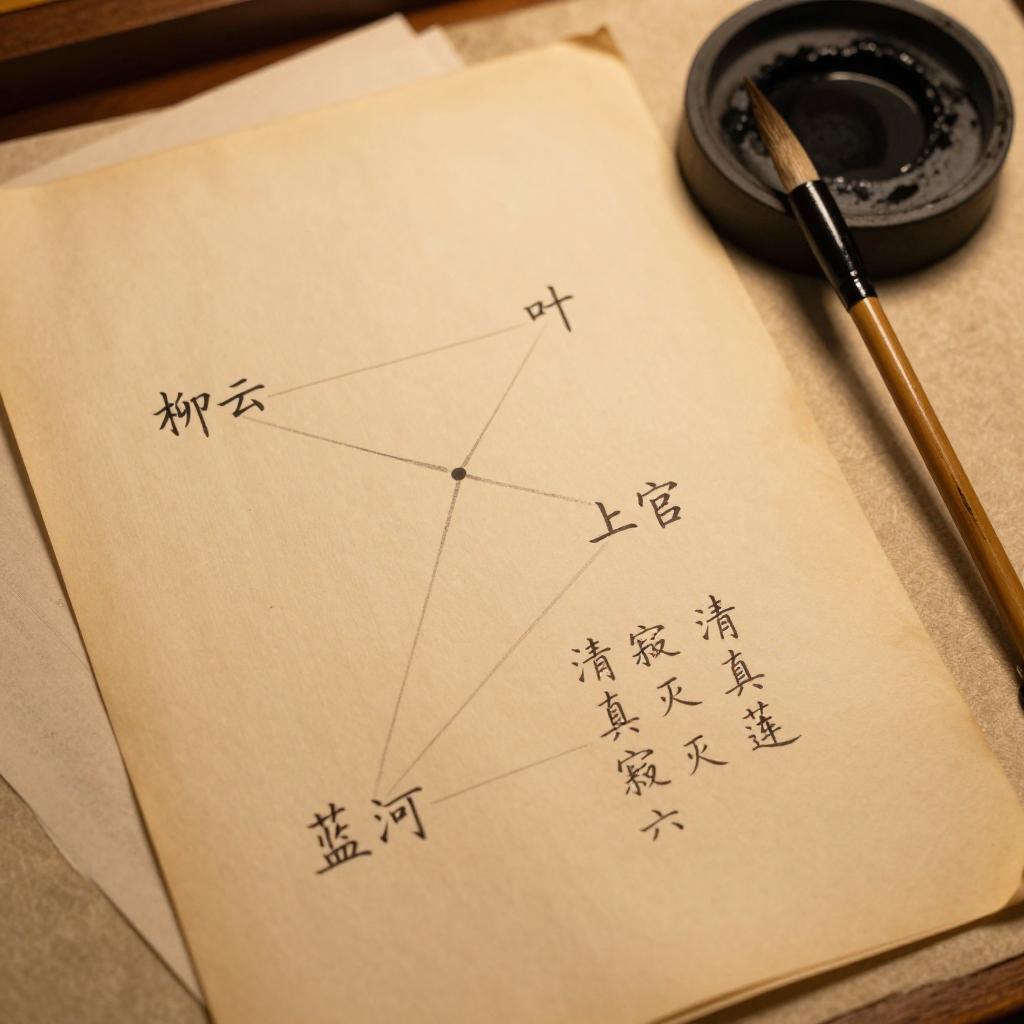 叶
柳云
上官
清真莲
寂灭灭
清真寂六
蓝河